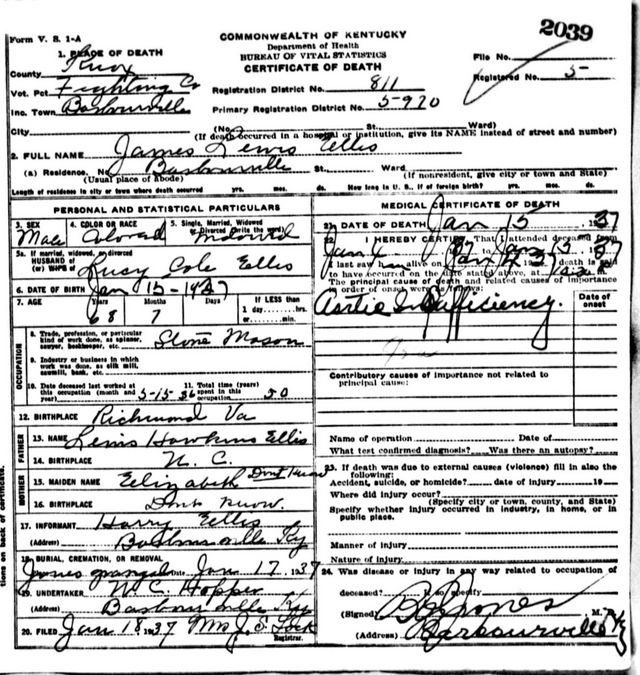 2039
Form V. S. 1-A
COMMONWEALTH OF KENTUCKY
Department of Health
BUREAU OF VITAL STATISTICS
CERTIFICATE OF DEATH
1. PLACE OF DEATH
County Knox
Vot. Pct Fighting Cr
Inc. Town Barbourville
City
Registration District No. 811
Primary Registration District No. 5-920
File No.
Registered No. 5-
(No. St. Ward)
(If death occurred in a hospital or institution, give its NAME instead of street and number)
2. FULL NAME James Lewis Ellis
(a) Residence. No Barbourville St., Ward
(Usual place of abode) (If nonresident, give city or town and State)
Length of residence in city or town where death occurred yrs. mos. ds. How long in U. S., if of foreign birth? yrs. mos. ds.
PERSONAL AND STATISTICAL PARTICULARS
3. SEX 4. COLOR OR RACE 5. Single, Married, Widowed or Divorced (write the word)
Male Colored Widowed
5a. If married, widowed, or divorced
HUSBAND of
(or) WIFE of Lucy Cole Ellis
6. DATE OF BIRTH Jan 15-1937
7. AGE Years Months Days If LESS than
1 day hrs.
or min.
68 7
OCCUPATION
8. Trade, profession, or particular
kind of work done, as spinner,
sawyer, bookkeeper, etc. Stone Mason
9. Industry or business in which
work was done, as silk mill,
sawmill, bank, etc.
10. Date deceased last worked at
this occupation (month and
year) 5-15-36
11. Total time (years)
spent in this
occupation 50
12. BIRTHPLACE Richmond Va
FATHER
13. NAME Lewis Hawkins Ellis
14. BIRTHPLACE N. C.
MOTHER
15. MAIDEN NAME Elizabeth Dont Know
16. BIRTHPLACE Dont Know.
17. INFORMANT Harry Ellis
(Address) Barbourville Ky
18. BURIAL, CREMATION, OR REMOVAL
Date Jan 17 1937
19. UNDERTAKER W C Hopper
(Address) Barbourville Ky
20. FILED Jan 18 1937 Mrs J. S. Lock
Registrar.
MEDICAL CERTIFICATE OF DEATH
21. DATE OF DEATH Jan 15 1937
22. I HEREBY CERTIFY, That I attended deceased from
I last saw him alive on death is said
to have occurred on the date stated above, at
The principal cause of death and related causes of importance
in order of onset were as follows:
Date of
onset
Aortic Insufficiency.
Contributory causes of importance not related to
principal cause:
Name of operation Date of
What test confirmed diagnosis? Was there an autopsy?
23. If death was due to external causes (violence) fill in also the
following:
Accident, suicide, or homicide? date of injury 19
Where did injury occur?
(Specify city or town, county, and State)
Specify whether injury occurred in industry, in home, or in
public place.
Manner of injury
Nature of injury
24. Was disease or injury in any way related to occupation of
deceased? If so specify
(Signed) Jones M.
(Address) Barbourville Ky
tions on back of certificate.